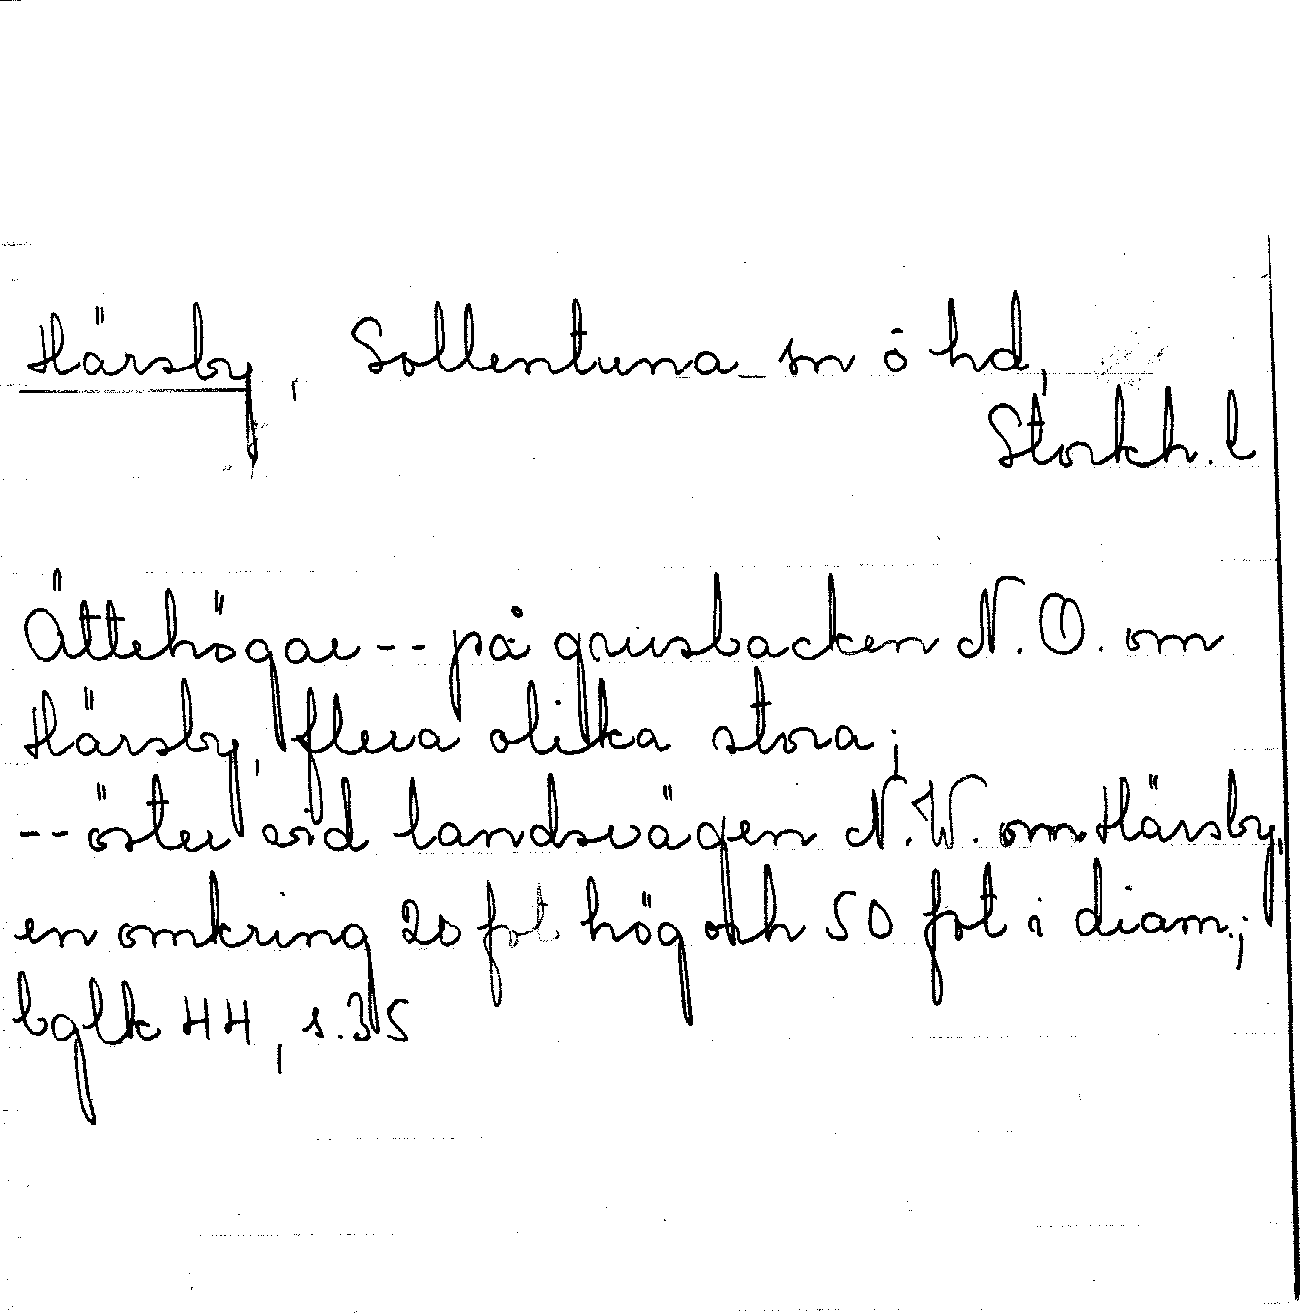 Härsby, Sollentuna sn o hd,
Stockh. l
Ättehögar -- på grusbacken N.O. om
Härsby, flera olika stora;
-- öster vid landsvägen N.W. om Härsby,
en omkring 20 fot hög och 50 fot i diam.;
bglk 44, s.35